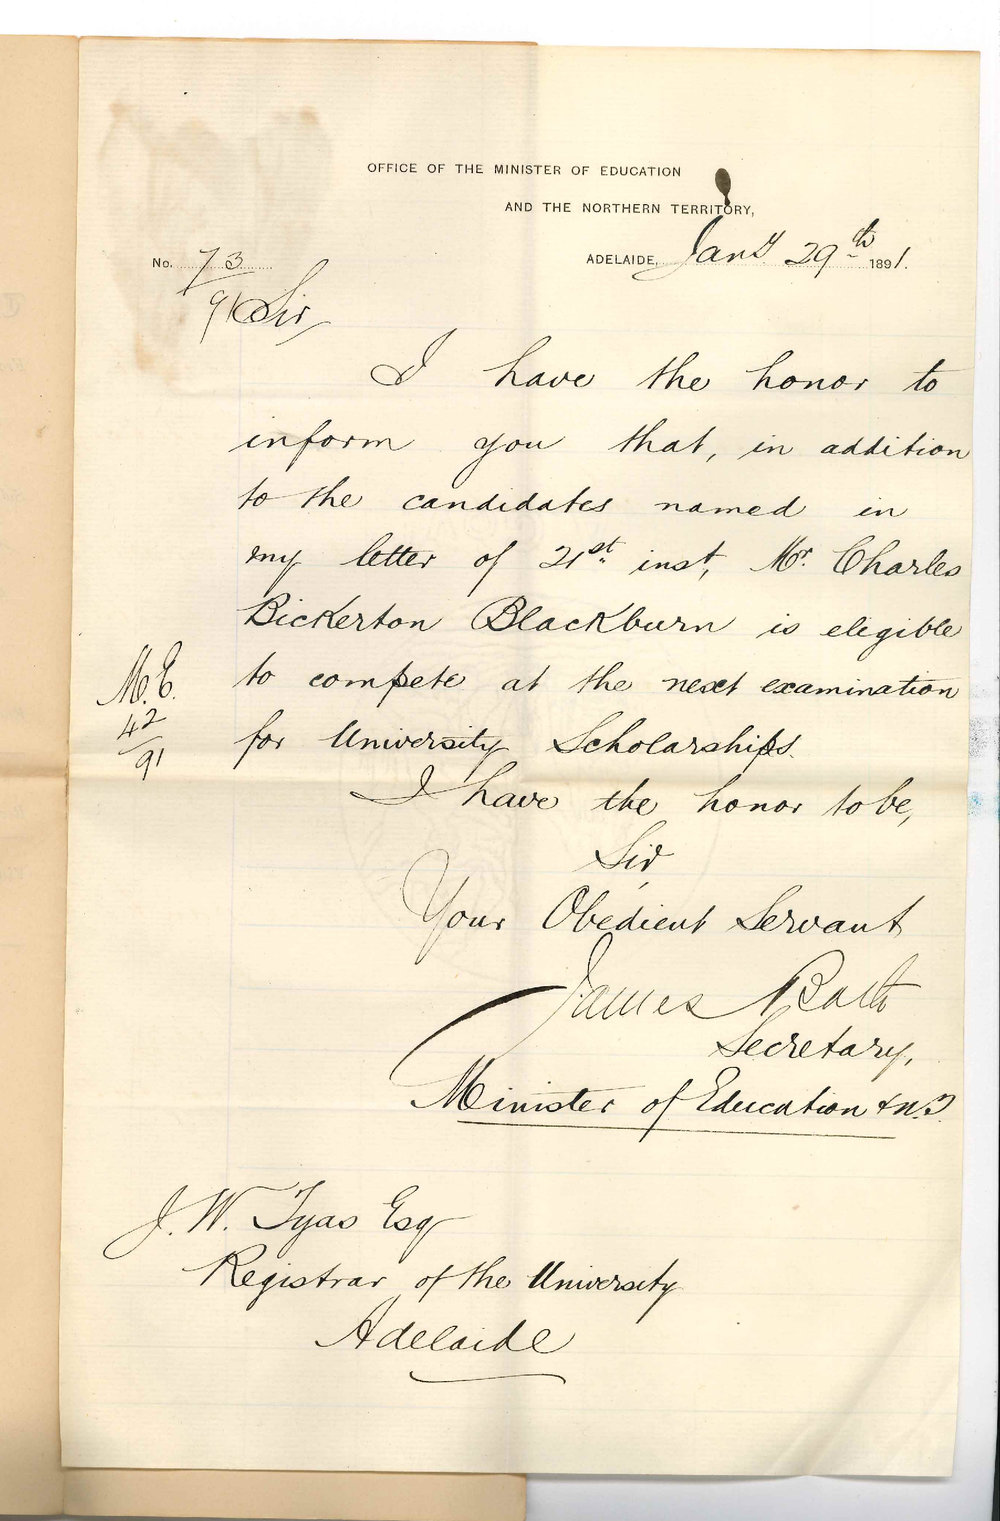 OFFICE OF THE MINISTER OF EDUCATION
AND THE NORTHERN TERRITORY,
No. 73
ADELAIDE, Jany 29th 1891.
91 Sir,
I have the honor to
inform you that, in addition
to the candidates named in
my letter of 21st inst, Mr. Charles
Bickerton Blackburn is eligible
to compete at the next examination
for University Scholarships.
M.E.
42
91
I have the honor to be,
Sir,
Your Obedient Servant
James Bath
Secretary,
Minister of Education & N.T.
J. W. Tyas Esq
Registrar of the University
Adelaide